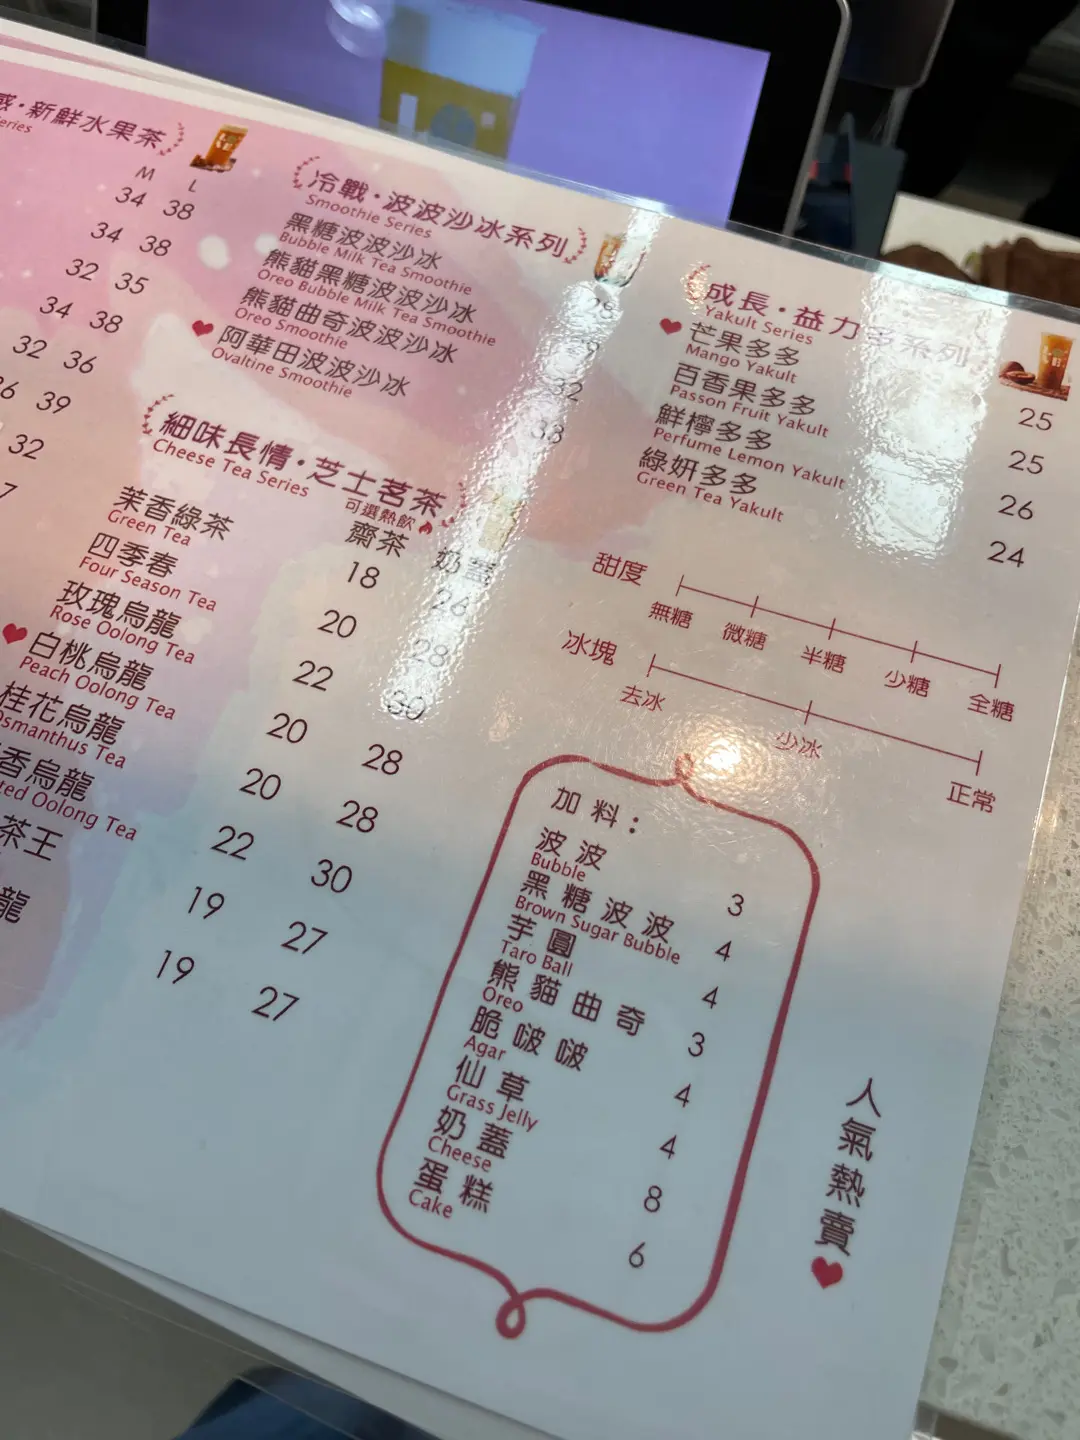 感·新鮮水果茶
eries
M L
34 38
34 38
32 35
34 38
32 36
36 39
32
7
冷戰·波波沙冰系列
Smoothie Series
黑糖波波沙冰
Bubble Milk Tea Smoothie
28
熊貓黑糖波波沙冰
Oreo Bubble Milk Tea Smoothie
熊貓曲奇波波沙冰
Oreo Smoothie
32
阿華田波波沙冰
Ovaltine Smoothie
33
細味長情·芝士茗茶
Cheese Tea Series
可選熱飲
齋茶 奶蓋
茉香綠茶 18 26
Green Tea
四季春 20 28
Four Season Tea
玫瑰烏龍 22 30
Rose Oolong Tea
白桃烏龍 20 28
Peach Oolong Tea
桂花烏龍 20 28
Osmanthus Tea
香烏龍 22 30
ted Oolong Tea
茶王 19 27
龍 19 27
成長·益力多系列
Yakult Series
芒果多多 25
Mango Yakult
百香果多多 25
Passon Fruit Yakult
鮮檸多多 26
Perfume Lemon Yakult
綠妍多多 24
Green Tea Yakult
甜度
無糖 微糖 半糖 少糖 全糖
冰塊
去冰 少冰 正常
加料：
波波 3
Bubble
黑糖波波 4
Brown Sugar Bubble
芋圓 4
Taro Ball
熊貓曲奇 3
Oreo
脆啵啵 4
Agar
仙草 4
Grass Jelly
奶蓋 8
Cheese
蛋糕 6
Cake
人氣熱賣